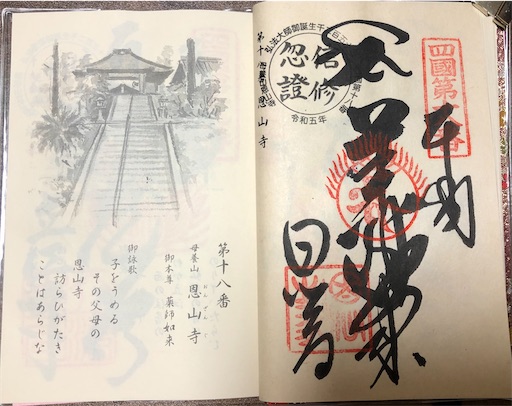 奉納
四國第十八番
薬師如来
恩山寺
弘法大師御誕生千
信修
忽證
令和五年
恩山寺
第十八番
母養山 恩山寺
おんざんじ
御本尊 薬師如来
御詠歌
子をうめる
その父母の
恩山寺
訪らひがたき
ことはあらじな